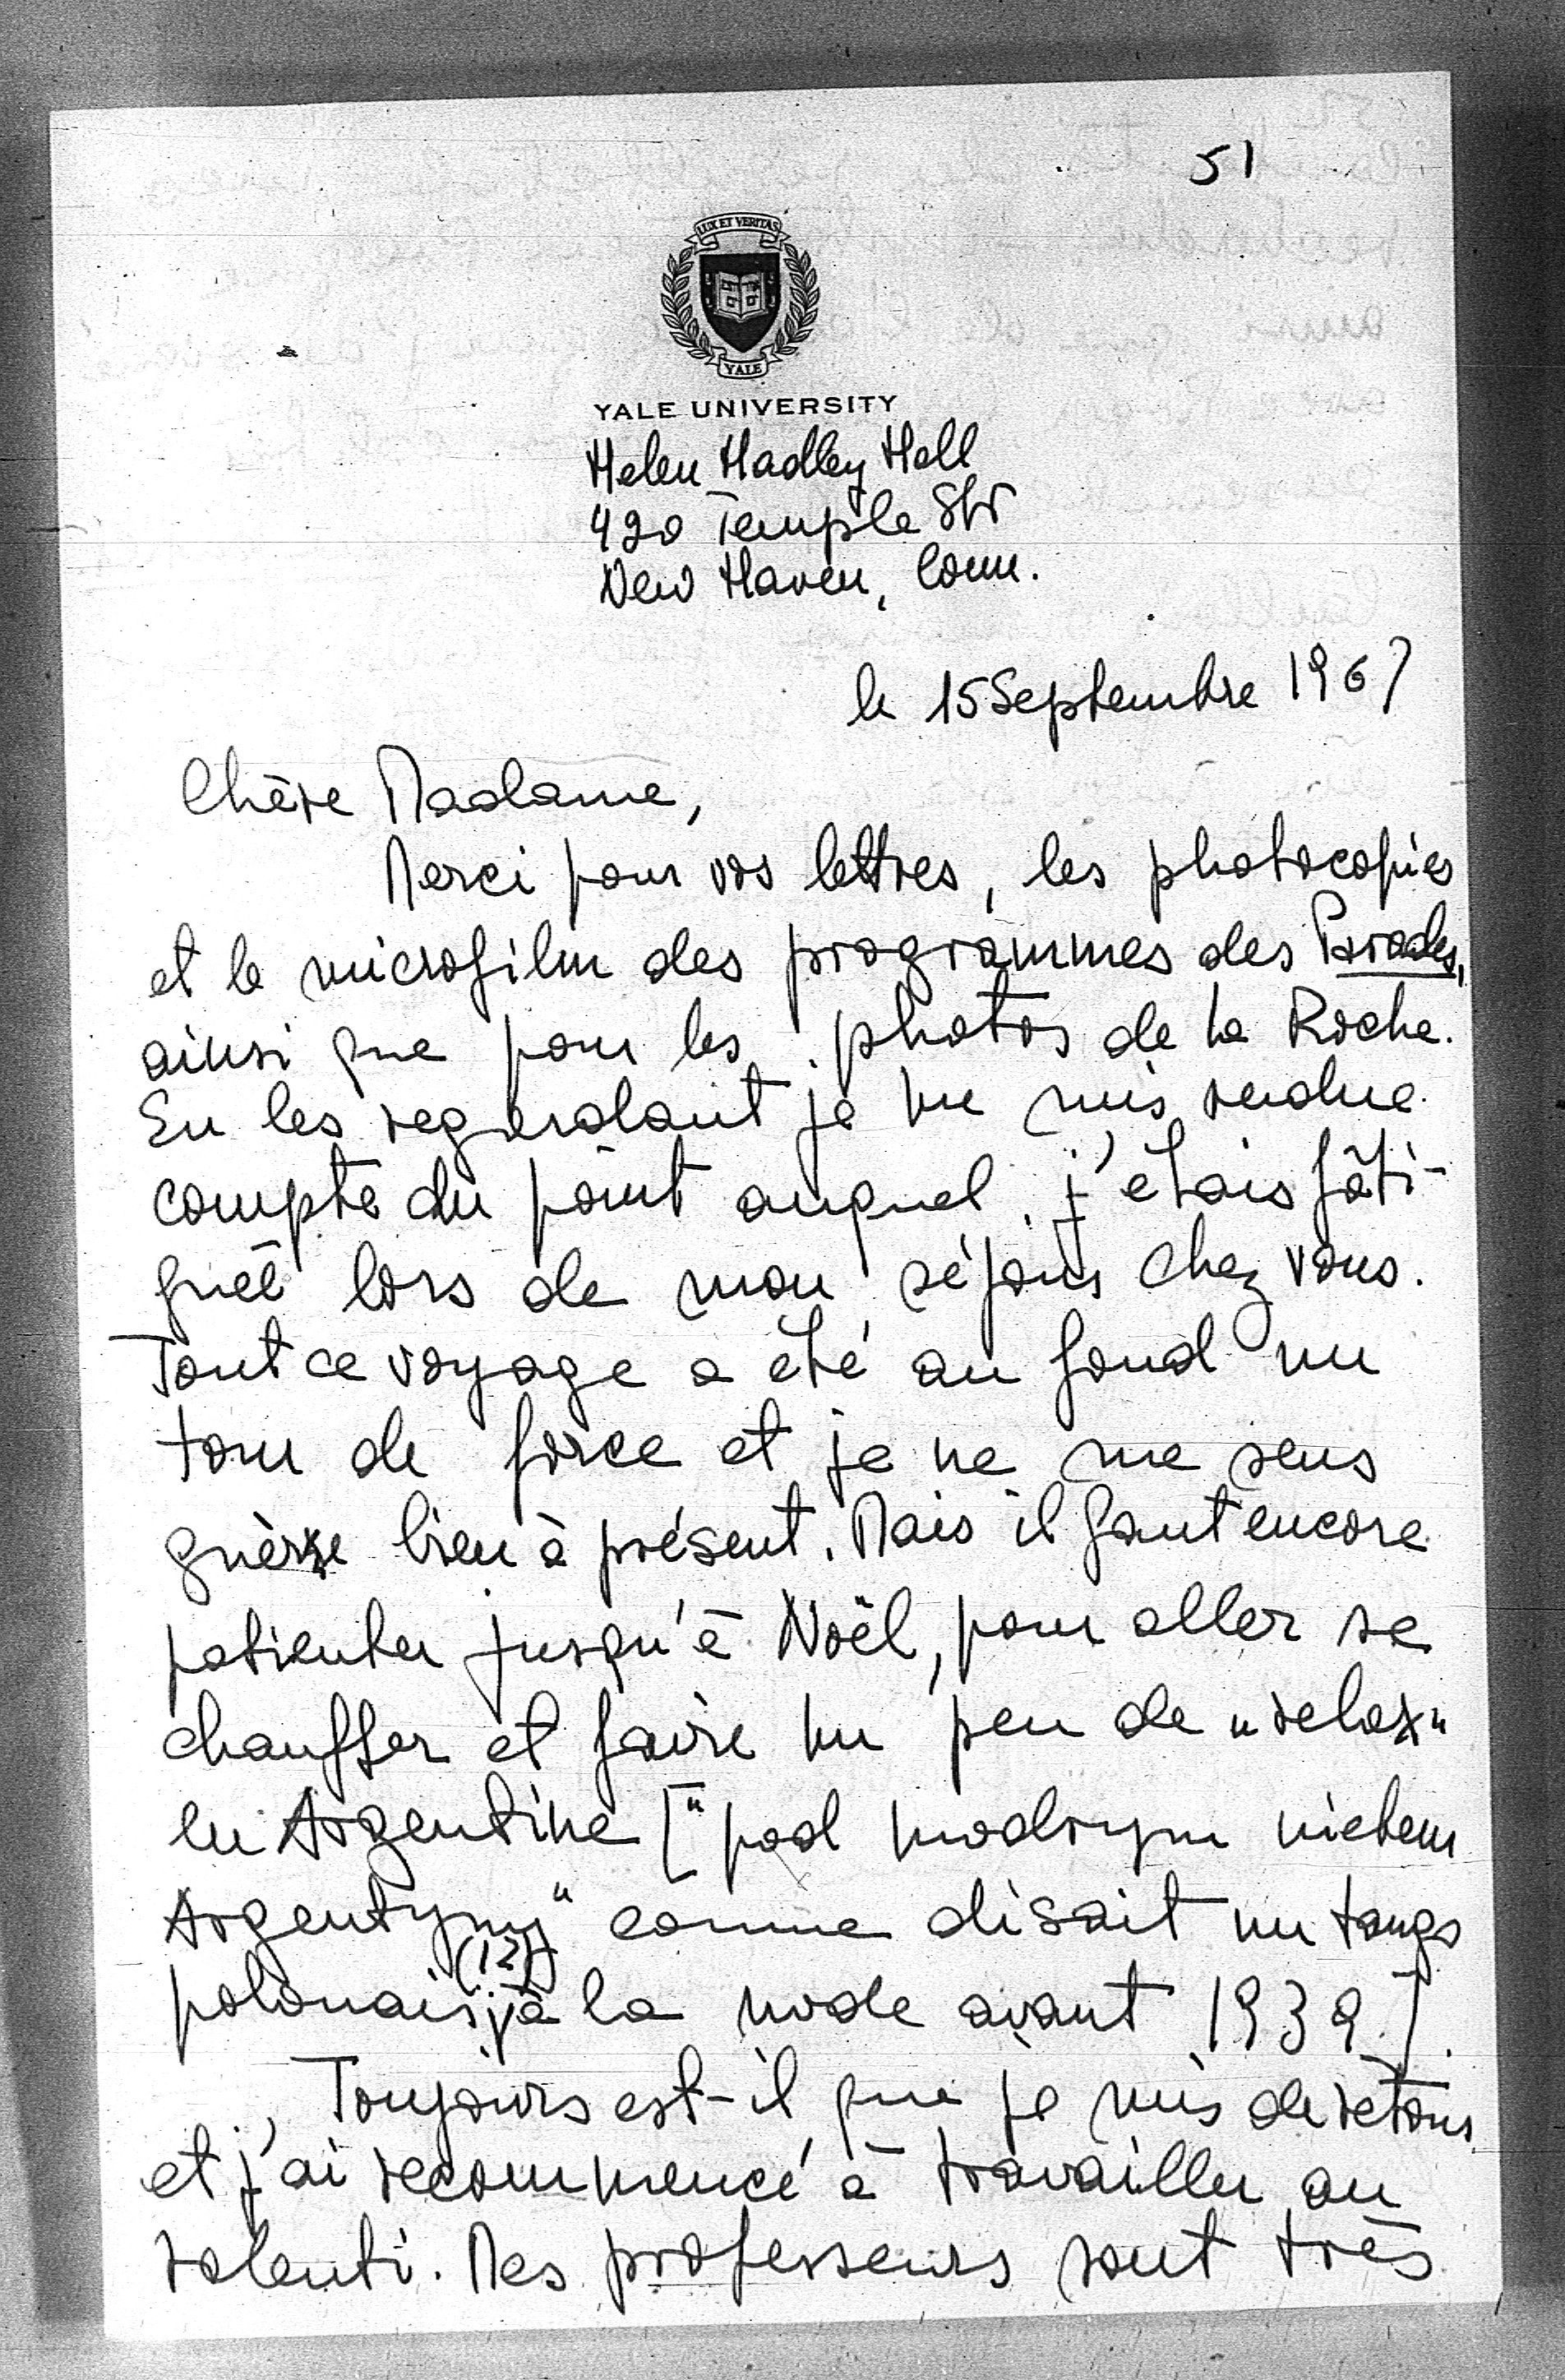 51
LUX ET VERITAS
YALE
YALE UNIVERSITY
Helen Hadley Hall
420 Temple Str
New Haven, Conn.
le 15 Septembre 1967
Chère Madame,
Merci pour vos lettres, les photocopies
et le microfilm des programmes des
ainsi que pour les photos de la Roche.
En les regardant je me suis rendue
compte du point auquel j'étais fâti-
guée lors de mon séjour chez vous.
Tout ce voyage a été au fond un
tour de force et je ne me sens
guère bien à présent. Mais il faut encore
patienter jusqu'à Noël, pour aller se
chauffer et faire un peu de "relax"
en Argentine ["pod modrym niebem
Argentyny" comme disait un tango
polonais (12) à la mode avant 1939].
Toujours est-il que je suis de retour
et j'ai recommencé à travailler au
ralenti. Mes professeurs sont très